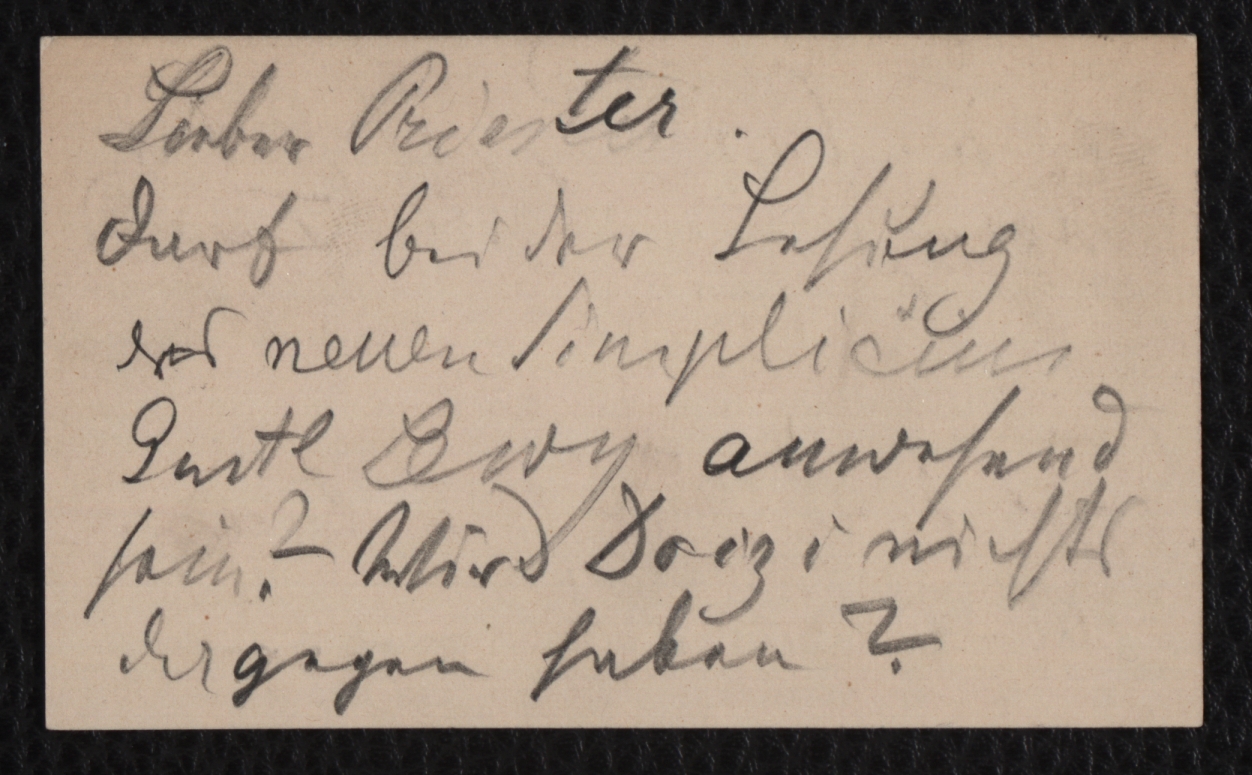 Lieber Priester.
Darf bei der Lesung
des neuen Simplicius
Gustl Lewy anwesend
sein? Wird Doizi nichts
dagegen haben?